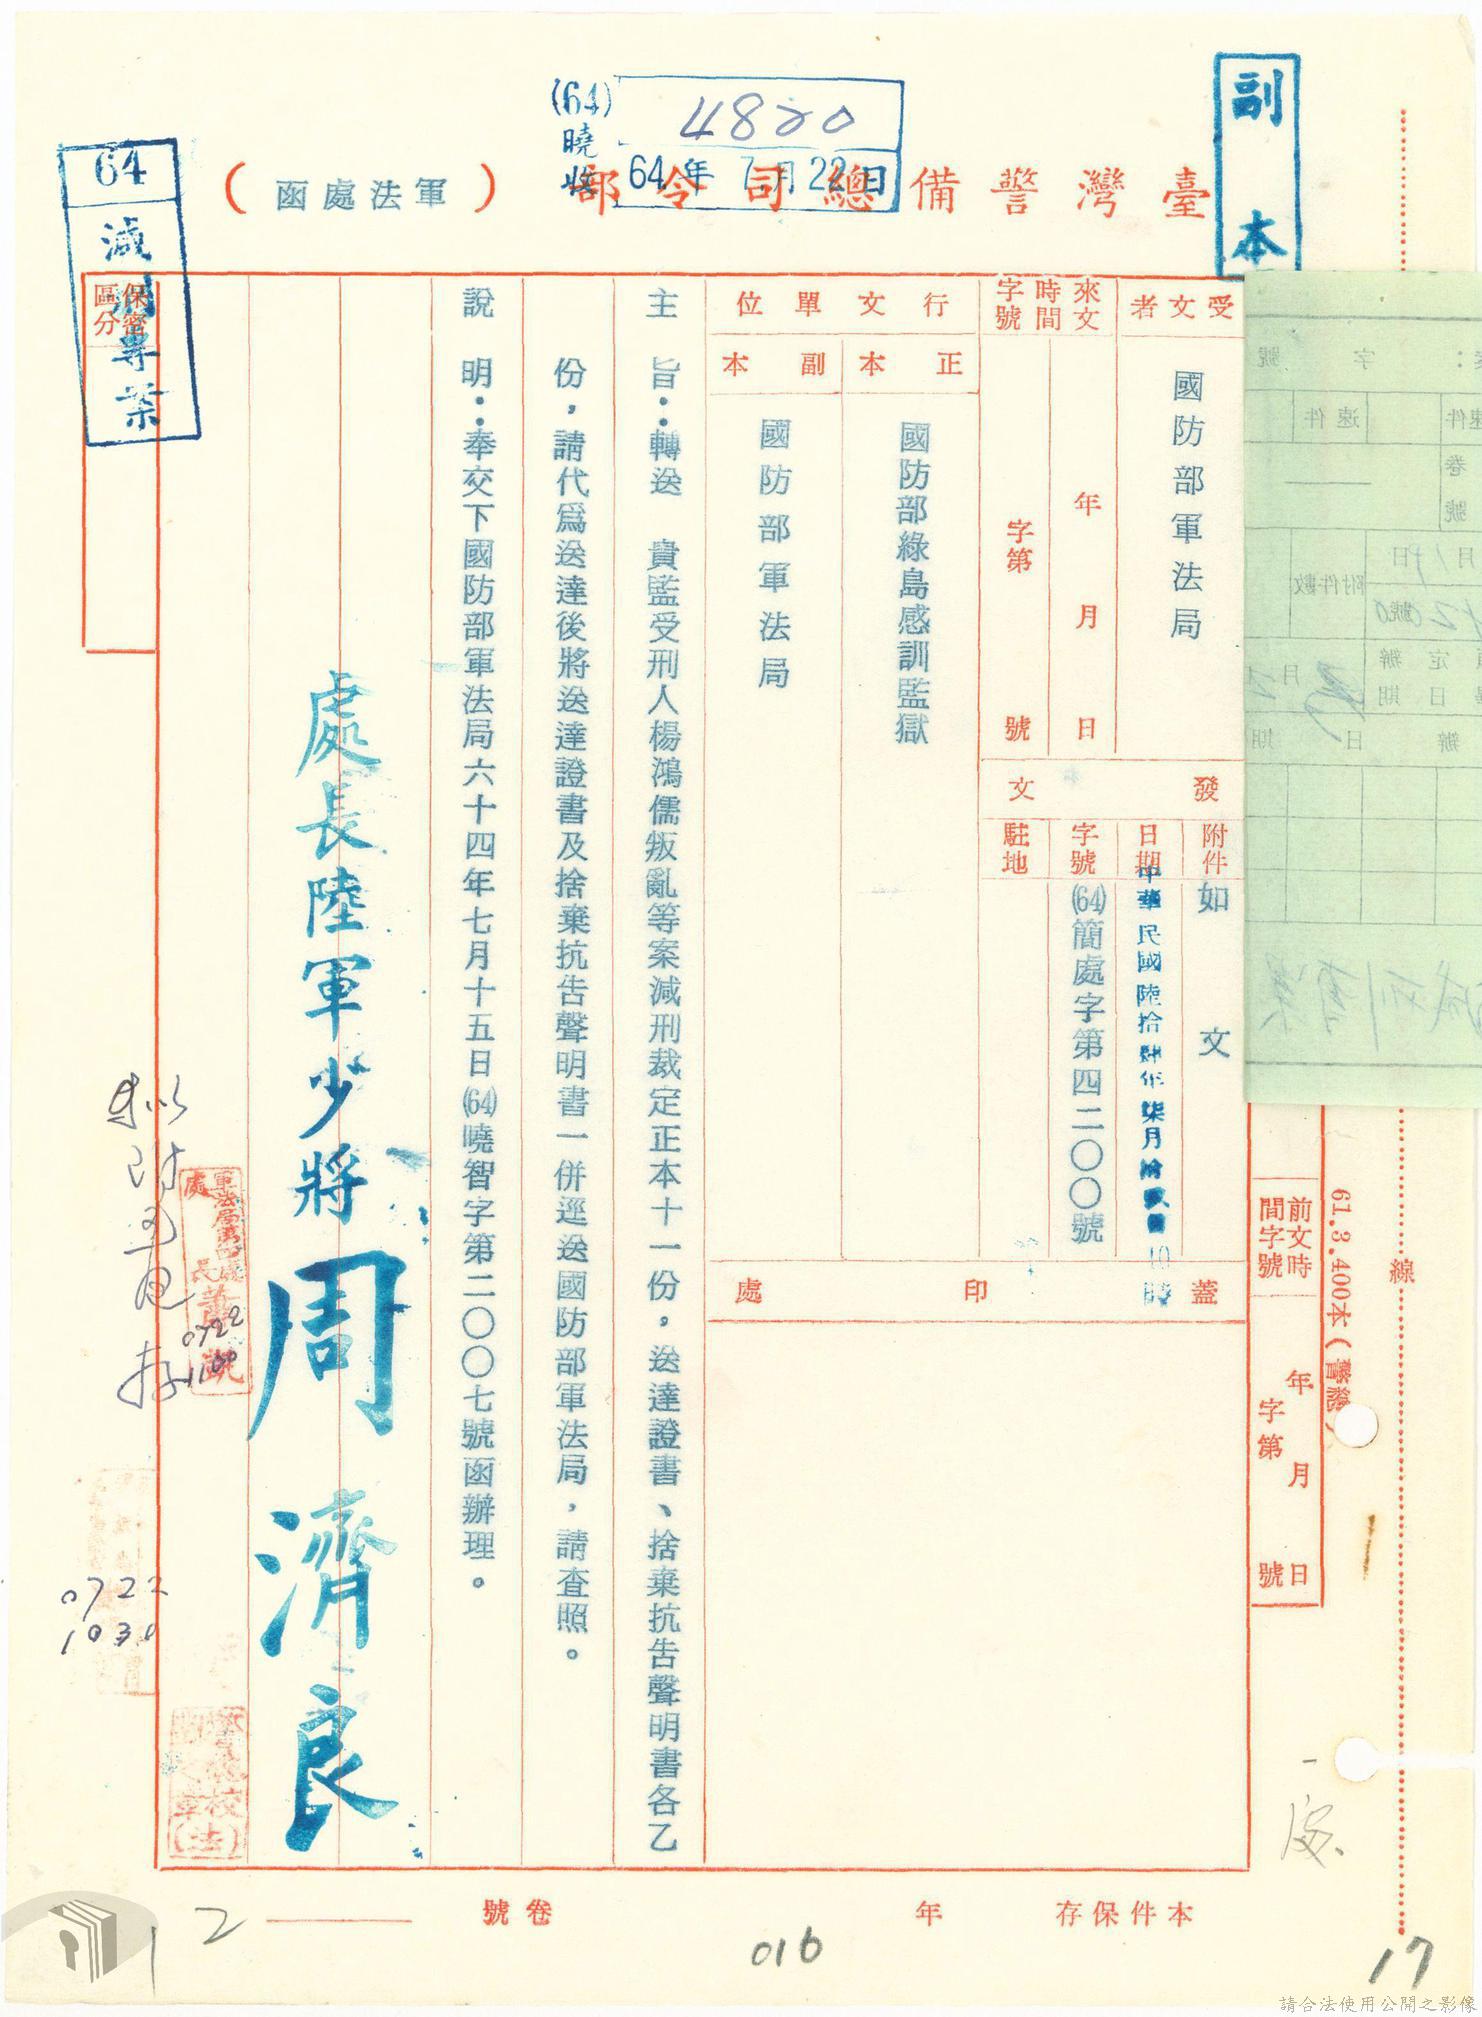 副本
(64)曉
4820
64年7月22日
臺灣警備總司令部
(軍法處函)
64減刑專案
保密區分
受文者
國防部軍法局
來文時間字號
年月日
字第號
行文單位
正本
國防部綠島感訓監獄
副本
國防部軍法局
發文
附件
如文
日期
中華民國陸拾肆年柒月拾玖日10時
字號
(64)簡處字第四二〇〇號
駐地
蓋印處
主旨：轉送　貴監受刑人楊鴻儒叛亂等案減刑裁定正本十一份。送達證書、捨棄抗告聲明書各乙
份，請代為送達後將送達證書及捨棄抗告聲明書一併逕送國防部軍法局，請查照。
說明：奉交下國防部軍法局六十四年七月十五日(64)曉智字第二〇〇七號函辦理。
處長陸軍少將周濟良
擬
存
0722
1100
0722
1030
前文時間字號
年月日
字第號
61.3.400本(警總)
線
本件保存
年
卷號
12
016
17
請合法使用公開之影像